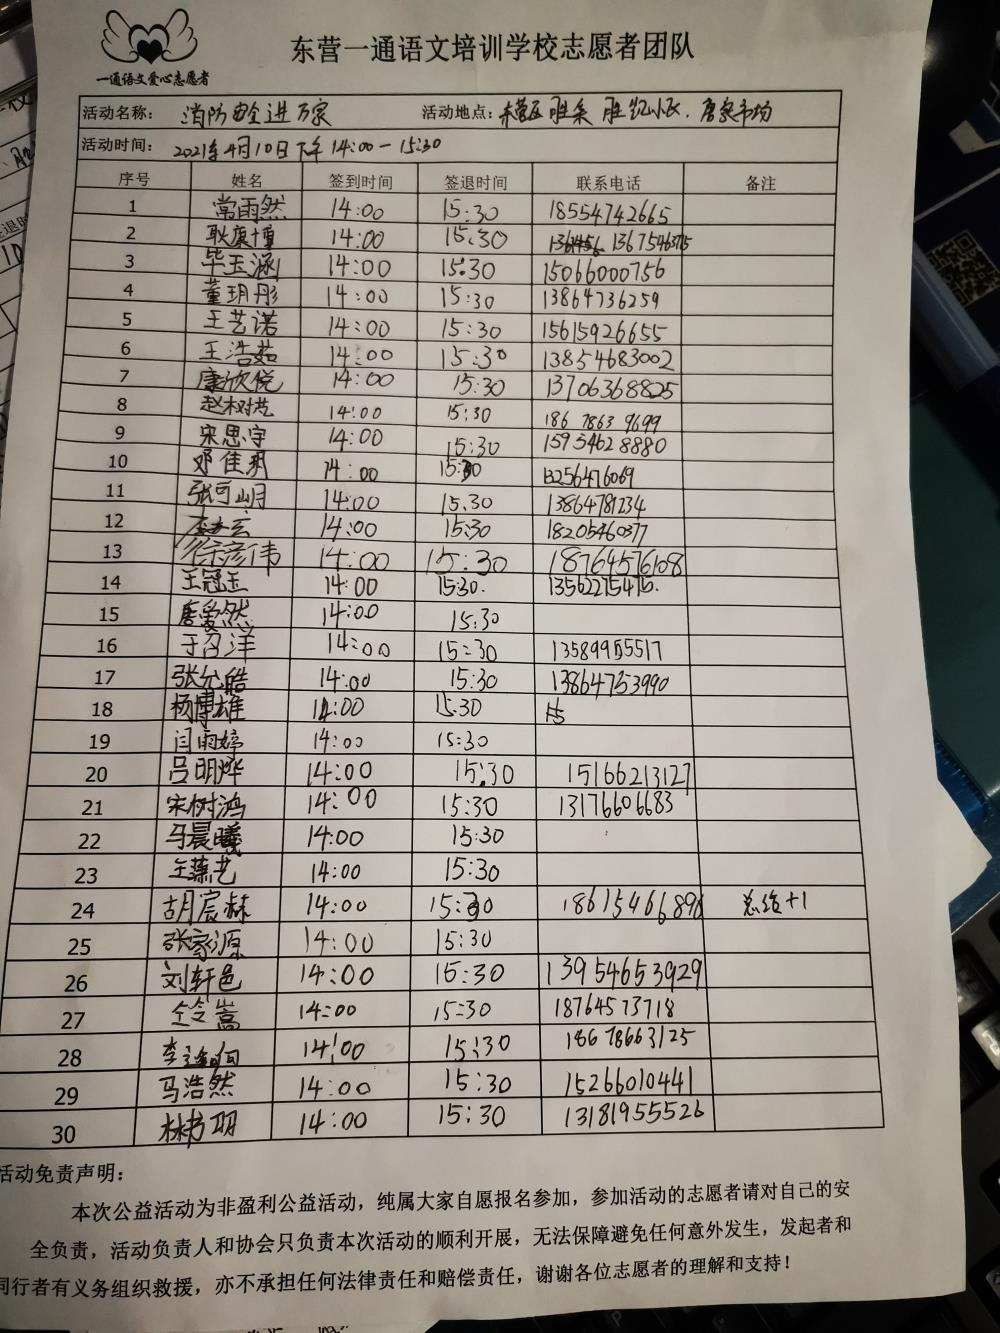 一通语文爱心志愿者
东营一通语文培训学校志愿者团队
活动名称： 消防安全进万家 活动地点：
活动时间： 2021年4月10日下午14:00-15:30
序号 姓名 签到时间 签退时间 联系电话 备注
1 常雨然 14:00 15:30 18554742665
2 耿康博 14:00 15:30
3 毕玉涵 14:00 15:30 15066000756
4 董玥彤 14:00 15:30 13864736259
5 王艺诺 14:00 15:30 15615926655
6 王浩茹 14:00 15:30 13854683002
7 康欣悦 14:00 15:30 13706368825
8 14:00 15:30 186 7863 9699
9 宋思宇 14:00 15:30 15954628880
10 邓佳 14:00 15:30 13256476069
11 张可明 14:00 15:30 13864781234
12 14:00 15:30 18205460377
13 徐彦伟 14:00 15:30 18764576108
14 王冠玉 14:00 15:30. 13562275475.
15 唐爱然 14:00 15:30
16 于召洋 14:00 15:30 13589955517
17 张允皓 14:00 15:30 13864753990
18 杨博雄 14:00 15:30
19 闫雨婷 14:00 15:30
20 吕明烨 14:00 15:30 15166213127
21 宋树鸿 14:00 15:30 13176606683
22 马晨曦 14:00 15:30
23 14:00 15:30
24 胡宸赫 14:00 15:30 18615466896 总结+1
25 张家源 14:00 15:30
26 刘轩邑 14:00 15:30 13954653929
27 14:00 15:30 18764573718
28 李 14:00 15:30 18678663125
29 马浩然 14:00 15:30 15266010441
30 林书玥 14:00 15:30 13181955526
活动免责声明：
本次公益活动为非盈利公益活动，纯属大家自愿报名参加，参加活动的志愿者请对自己的安
全负责，活动负责人和协会只负责本次活动的顺利开展，无法保障避免任何意外发生，发起者和
同行者有义务组织救援，亦不承担任何法律责任和赔偿责任，谢谢各位志愿者的理解和支持！